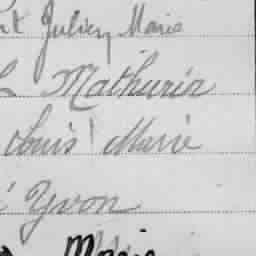 Julien Marie
Mathurin
Louis Marie
Yvon
Marie